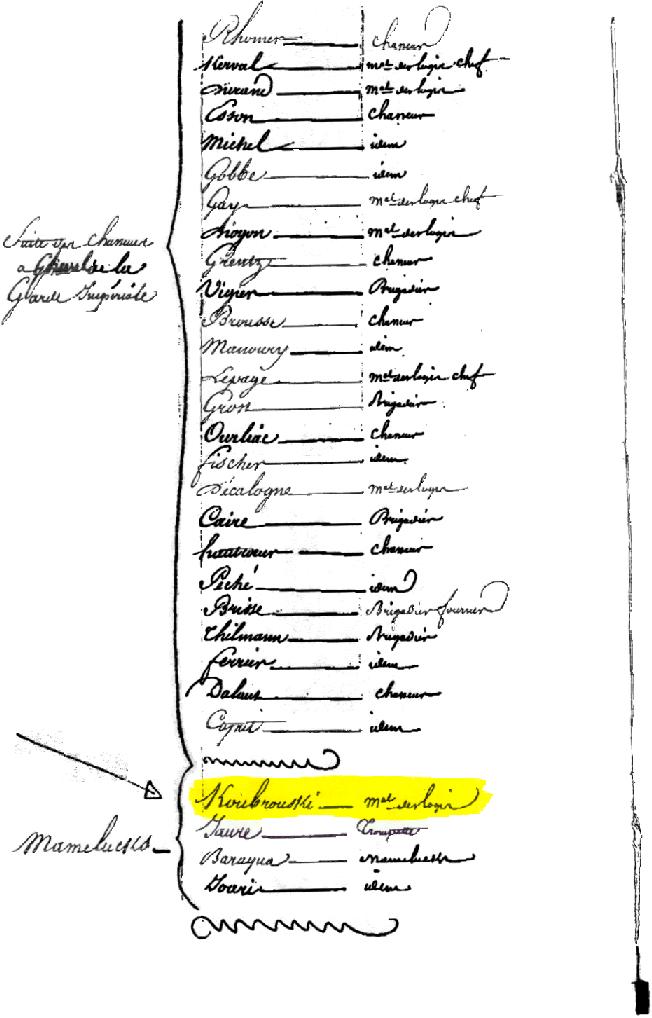 Suite des Chasseurs
à Cheval de la
Garde Impériale
Rhomer chasseur
Kerval mal des logis chef
Durand mal des logis
Esson chasseur
Michel idem
Gobbe idem
Gay mal des logis chef
Noyon mal des logis
Greutz chasseur
Vigier Brigadier
Brousse chasseur
Manoury idem
Lepage mal des logis chef
Gron Brigadier
Ourliac chasseur
fischer idem
Décalogne mal des logis
Caire Brigadier
chasseur
Péché idem
Brisse Brigadier fourrier
Thilmann Brigadier
ferrier idem
chasseur
idem
Mamelucks
Koubrouski mal des logis
Trompette
Baraqua Mameluck
Souri idem